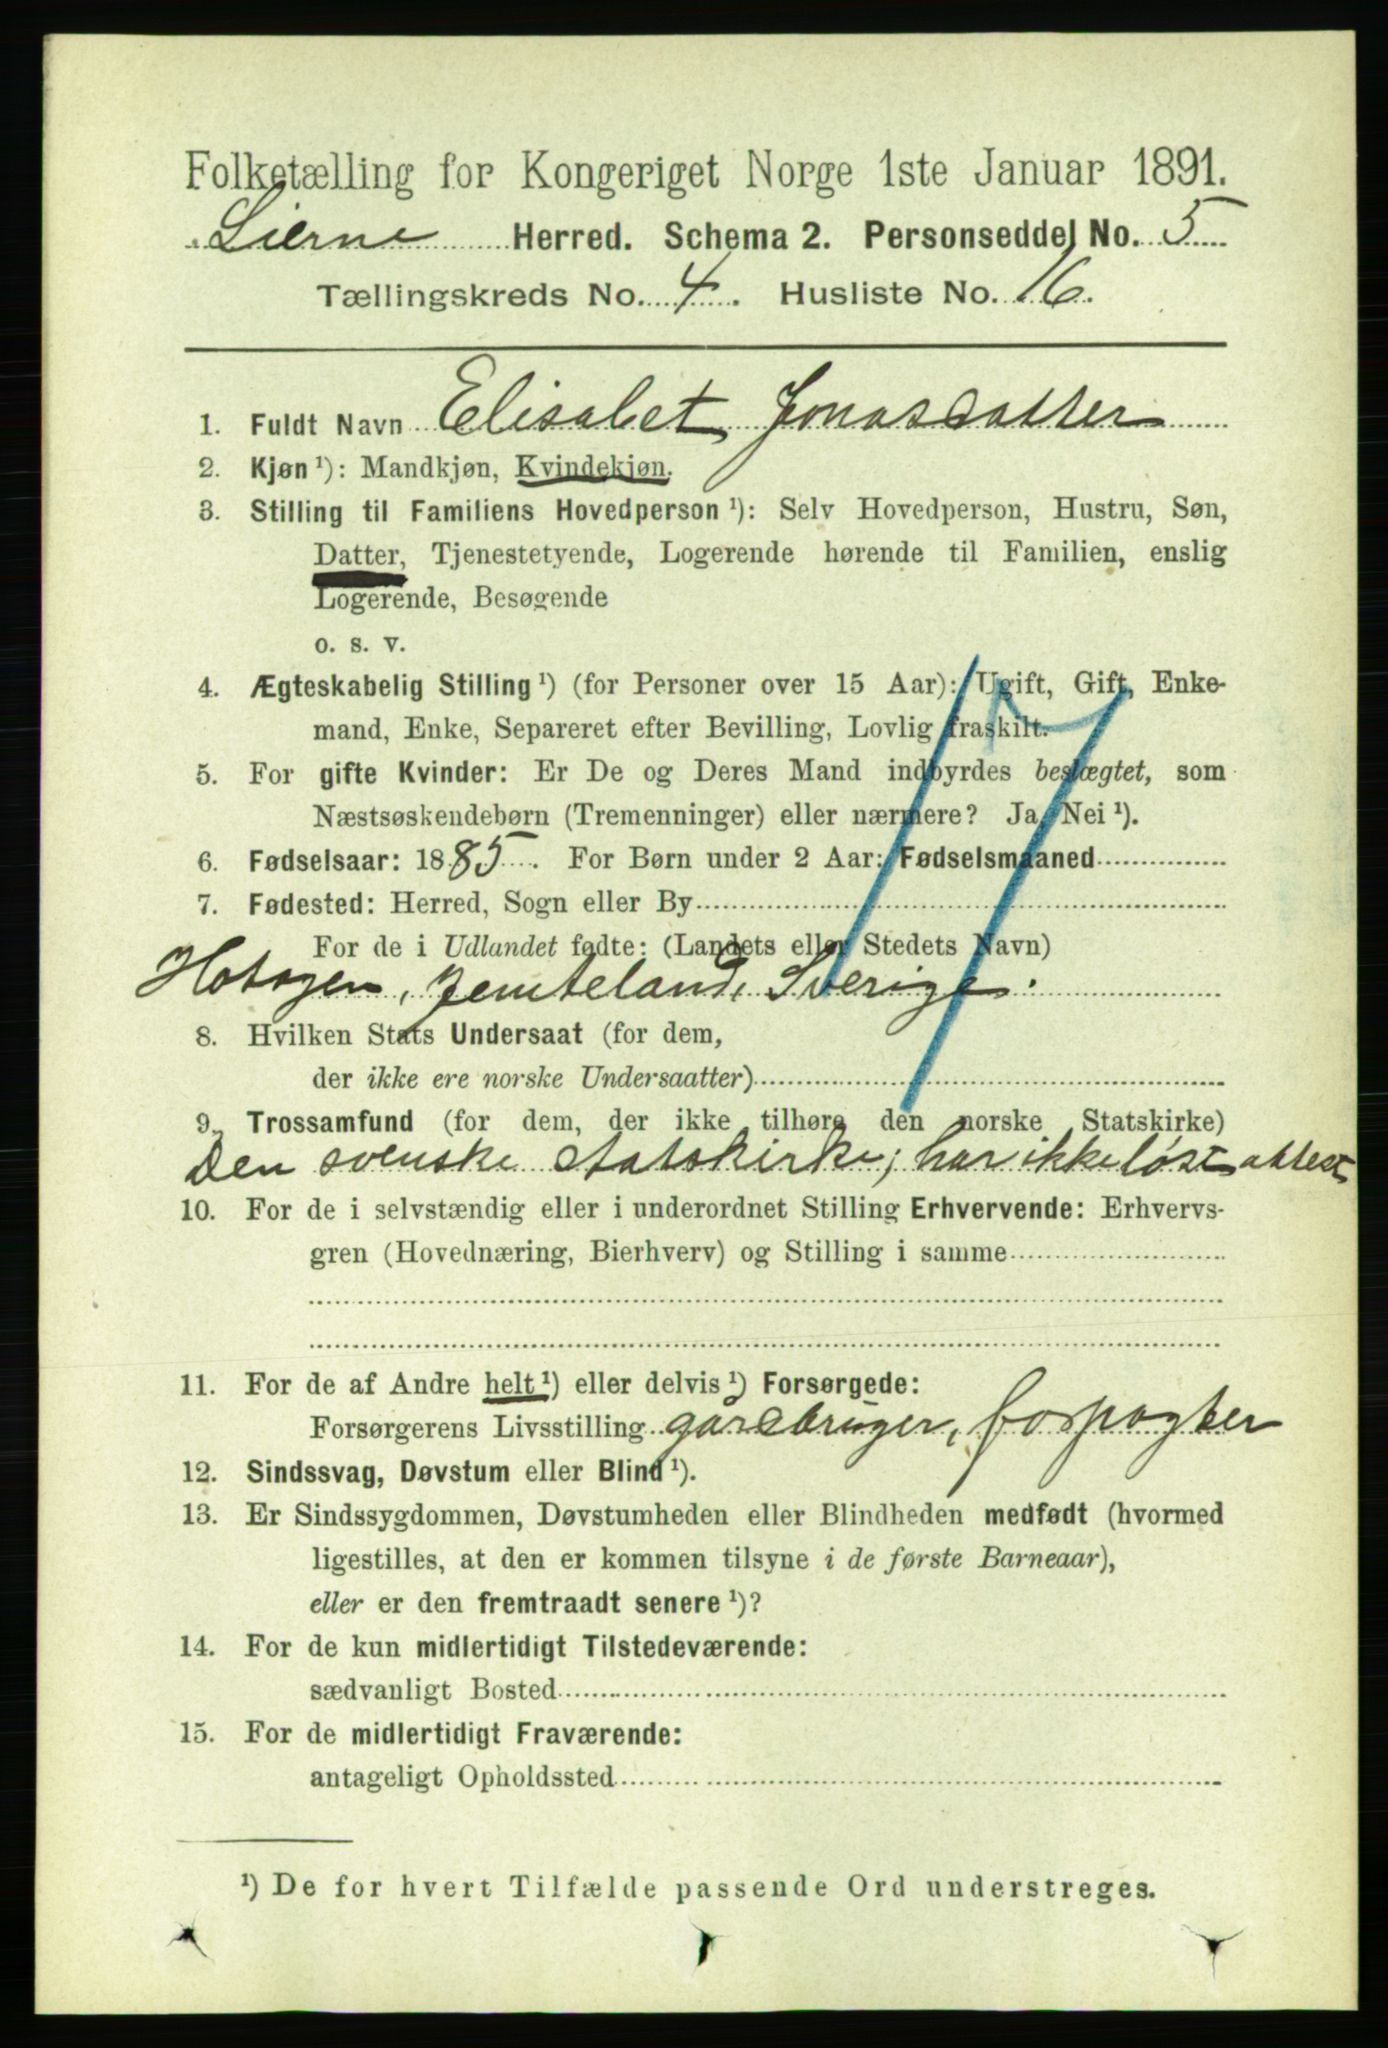 Folketælling for Kongeriget Norge 1ste Januar 1891.
Lierne Herred. Schema 2. Personseddel No. 5
Tællingskreds No. 4. Husliste No. 16.
1. Fuldt Navn Elisabet Jonasdatter
2. Kjøn ¹): Mandkjøn, Kvindekjøn.
3. Stilling til Familiens Hovedperson ¹): Selv Hovedperson, Hustru, Søn,
Datter, Tjenestetyende, Logerende hørende til Familien, enslig
Logerende, Besøgende
o. s. v.
4. Ægteskabelig Stilling ¹) (for Personer over 15 Aar): Ugift, Gift, Enke-
mand, Enke, Separeret efter Bevilling, Lovlig fraskilt.
5. For gifte Kvinder: Er De og Deres Mand indbyrdes beslægtet, som
Næstsøskendebørn (Tremenninger) eller nærmere? Ja, Nei ¹).
6. Fødselsaar: 1885. For Børn under 2 Aar: Fødselsmaaned
7. Fødested: Herred, Sogn eller By
For de i Udlandet fødte: (Landets eller Stedets Navn)
Hotagen, Jemteland, Sverige.
8. Hvilken Stats Undersaat (for dem,
der ikke ere norske Undersaatter)
9. Trossamfund (for dem, der ikke tilhøre den norske Statskirke)
Den svenske statskirke; har ikke løst attest
10. For de i selvstændig eller i underordnet Stilling Erhvervende: Erhvervs-
gren (Hovednæring, Bierhverv) og Stilling i samme
11. For de af Andre helt ¹) eller delvis ¹) Forsørgede:
Forsørgerens Livsstilling gårdbruger, forpagter
12. Sindssvag, Døvstum eller Blind ¹).
13. Er Sindssygdommen, Døvstumheden eller Blindheden medfødt (hvormed
ligestilles, at den er kommen tilsyne i de første Barneaar),
eller er den fremtraadt senere ¹)?
14. For de kun midlertidigt Tilstedeværende:
sædvanligt Bosted
15. For de midlertidigt Fraværende:
antageligt Opholdssted
¹) De for hvert Tilfælde passende Ord understreges.